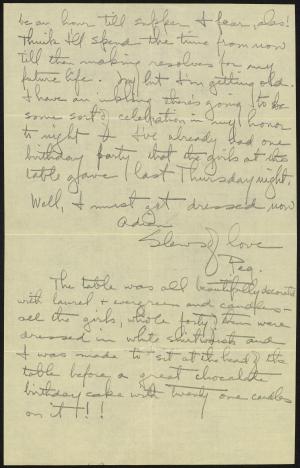 be an hour till supper I fear, alas!
Think I'll spend the time from now
till then making resolves for my
future life. My but I'm getting old.
I have an inkling there's going to be
some sort of celebration in my honor
to night & I've already had one
birthday party that the girls at the
table gave last Thursday night.
Well, I must get dressed now
Adieu
Slews of love
Peg.
The table was all beautifully decorated
with laurel & evergreens and candles -
all the girls, whole forty of them were
dressed in white shirtwaists and
I was made to sit at the head of the
table before a great chocolate
birthday cake with twenty one candles
on it!!